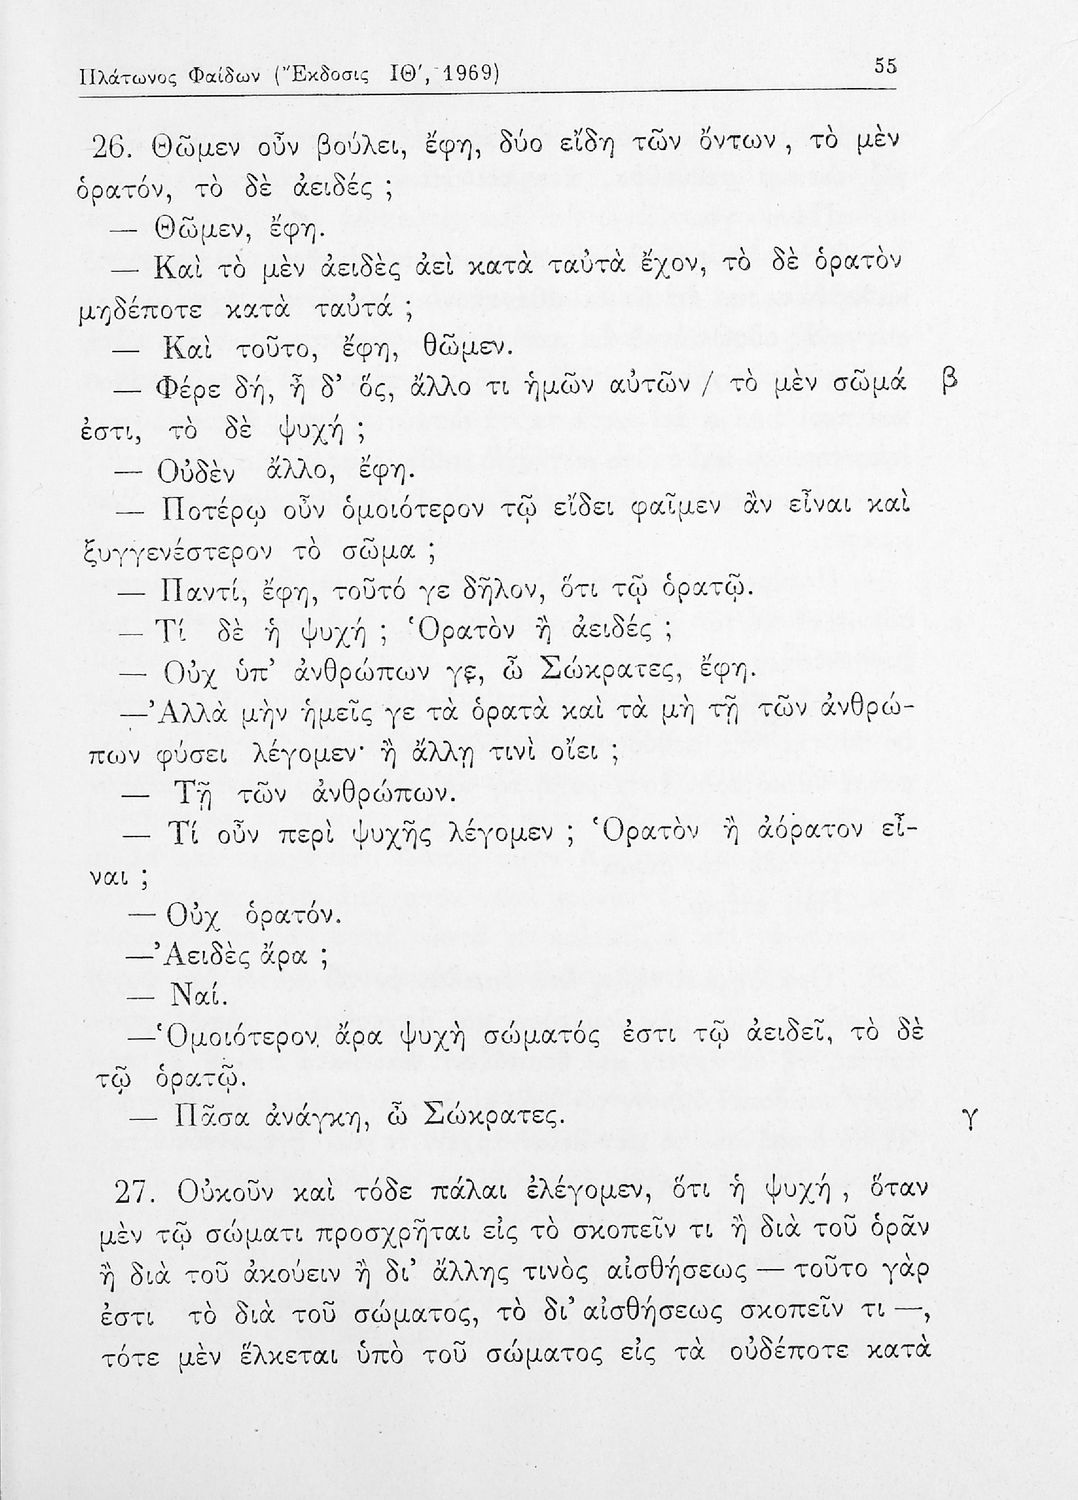 Πλάτωνος Φαίδων (Ἔκδοσις ΙΘ', 1969) 55
26. Θῶμεν οὖν βούλει, ἔφη, δύο εἴδη τῶν ὄντων, τὸ μὲν
ὁρατόν, τὸ δὲ ἀειδές ;
— Θῶμεν, ἔφη.
— Καὶ τὸ μὲν ἀειδὲς ἀεὶ κατὰ ταὐτὰ ἔχον, τὸ δὲ ὁρατὸν
μηδέποτε κατὰ ταὐτά ;
— Καὶ τοῦτο, ἔφη, θῶμεν.
— Φέρε δή, ἦ δ’ ὅς, ἄλλο τι ἡμῶν αὐτῶν / τὸ μὲν σῶμά β
ἐστι, τὸ δὲ ψυχή ;
— Οὐδὲν ἄλλο, ἔφη.
— Ποτέρῳ οὖν ὁμοιότερον τῷ εἴδει φαῖμεν ἂν εἶναι καὶ
ξυγγενέστερον τὸ σῶμα ;
— Παντί, ἔφη, τοῦτό γε δῆλον, ὅτι τῷ ὁρατῷ.
— Τί δὲ ἡ ψυχή ; Ὁρατὸν ἢ ἀειδές ;
— Οὐχ ὑπ’ ἀνθρώπων γε, ὦ Σώκρατες, ἔφη.
—Ἀλλὰ μὴν ἡμεῖς γε τὰ ὁρατὰ καὶ τὰ μὴ τῇ τῶν ἀνθρώ-
πων φύσει λέγομεν· ἢ ἄλλῃ τινὶ οἴει ;
— Τῇ τῶν ἀνθρώπων.
— Τί οὖν περὶ ψυχῆς λέγομεν ; Ὁρατὸν ἢ ἀόρατον εἶ-
ναι ;
— Οὐχ ὁρατόν.
—Ἀειδὲς ἄρα ;
— Ναί.
—Ὁμοιότερον ἄρα ψυχὴ σώματός ἐστι τῷ ἀειδεῖ, τὸ δὲ
τῷ ὁρατῷ.
— Πᾶσα ἀνάγκη, ὦ Σώκρατες. γ
27. Οὐκοῦν καὶ τόδε πάλαι ἐλέγομεν, ὅτι ἡ ψυχή, ὅταν
μὲν τῷ σώματι προσχρῆται εἰς τὸ σκοπεῖν τι ἢ διὰ τοῦ ὁρᾶν
ἢ διὰ τοῦ ἀκούειν ἢ δι’ ἄλλης τινὸς αἰσθήσεως — τοῦτο γάρ
ἐστι τὸ διὰ τοῦ σώματος, τὸ δι’ αἰσθήσεως σκοπεῖν τι —,
τότε μὲν ἕλκεται ὑπὸ τοῦ σώματος εἰς τὰ οὐδέποτε κατὰ